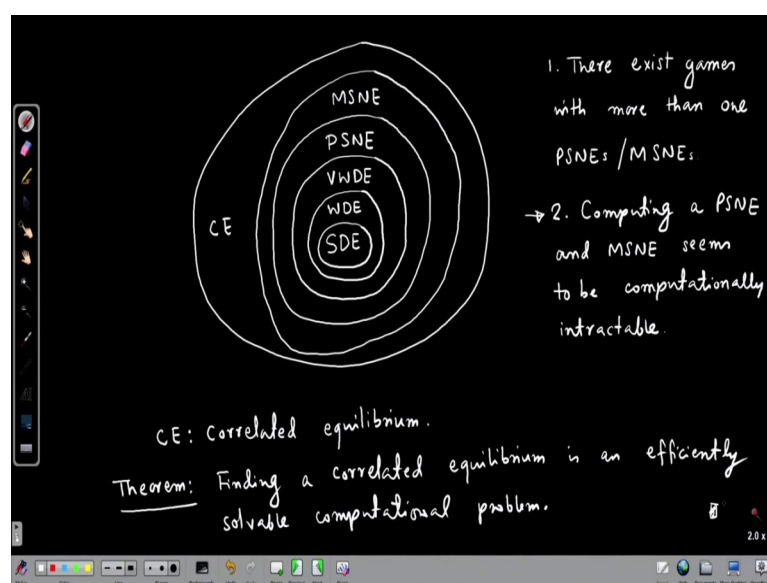 MSNE
PSNE
VWDE
WDE
SDE
CE
1. There exist games
with more than one
PSNEs / MSNEs.
→ 2. Computing a PSNE
and MSNE seems
to be computationally
intractable.
CE: Correlated equilibrium.
Theorem: Finding a correlated equilibrium is an efficiently
solvable computational problem.
2.0 x